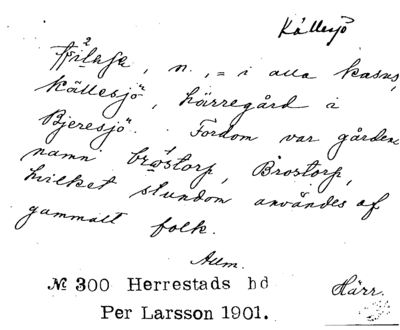 Källesjö
n., = i alla kasus,
Källesjö, härregård i
Bjeresjö. Fordom var gårdens
namn bröstorp, Brostorp,
hvilket stundom användes af
gammalt folk.
Allm.
№ 300 Herrestads hd Härr.
Per Larsson 1901.